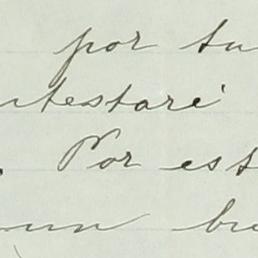 por tu
ntestaré
. Por est
un bre